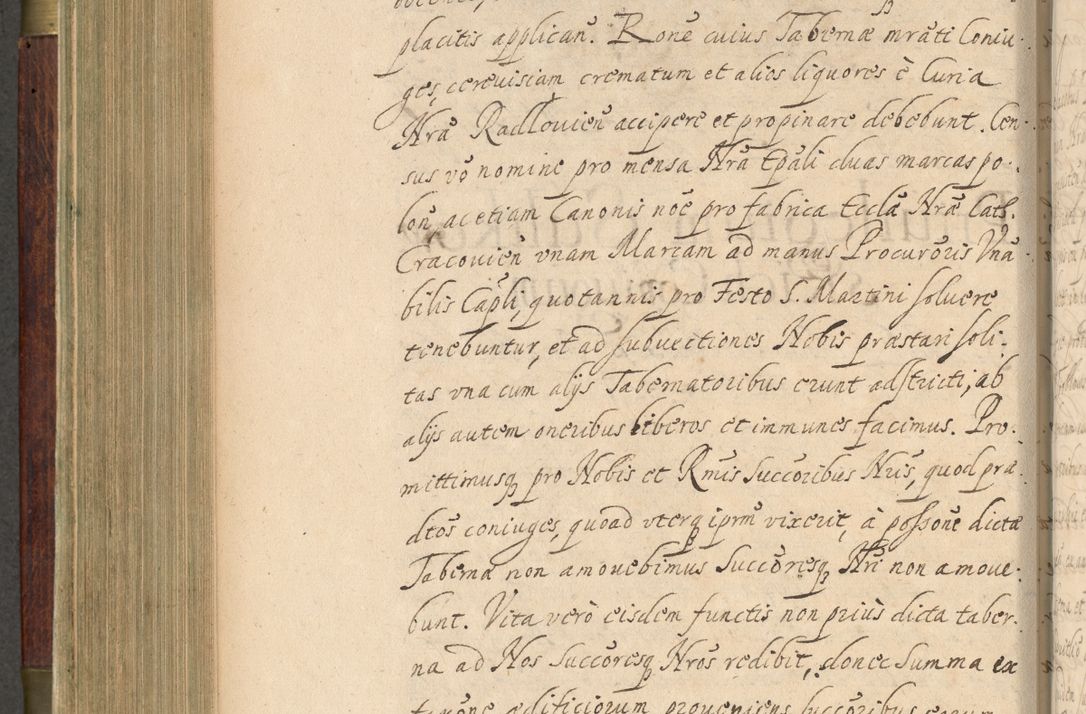 placitis applican̄. Rōne cuius Tabernæ mrāti Coniu-
ges, cerevisiam crematum et alios liquores è Curia
Nrā Radlovien̄ accipere et propinare debebunt. Cen-
sus vō nomine pro mensa Nrā Epāli duas marcas po-
lon̄, ac etiam Canonis nōē pro fabrica Ecclā Nræ Cath.
Cracovien̄ vnam Marcam ad manus Procurōris Vnā
bilis Cāpli, quotannis pro Festo S. Martini soluere
tenebuntur, et ad subuectiones Nobis præstari soli-
tas vna cum alijs Tabernatoribus erunt adstricti, ab
alijs autem oneribus liberos et immunes facimus. Pro-
mittimusq, pro Nobis et Rm̄is Succōribus Nr̄is, quod præ
dtōs coniuges, quoad vterq ipr̄m vixerit, à possōne dictæ
Taberna non amouebimus Succōresq, Nr̄i non amoue-
bunt. Vita verò eisdem functis non priùs dicta taber-
na ad Nos Succōresq Nrōs redibit, donec Summa ex